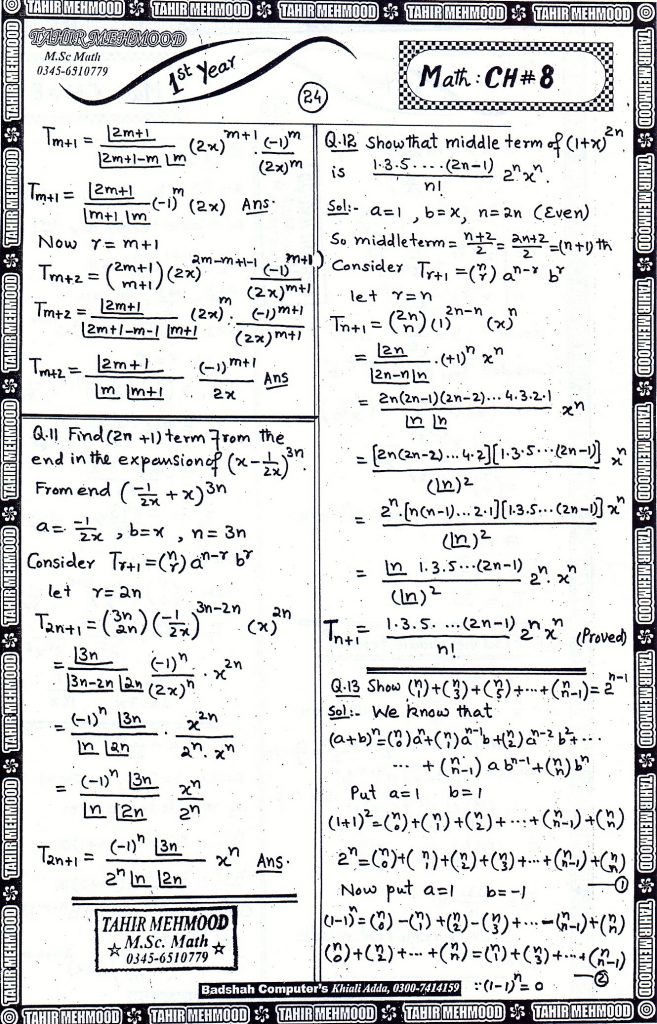 TAHIR MEHMOOD
M.Sc Math
0345-6510779
1st Year
24
Math: CH#8
Tm+1 = |2m+1 / |2m+1-m |m (2x)^m+1 (-1)^m / (2x)^m
Tm+1 = |2m+1 / |m+1 |m (-1)^m (2x) Ans.
Now r = m+1
Tm+2 = (2m+1 m+1) (2x)^2m-m+1-1 (-1)^m+1 / (2x)^m+1
Tm+2 = |2m+1 / |2m+1-m-1 |m+1 (2x)^m . (-1)^m+1 / (2x)^m+1
Tm+2 = |2m+1 / |m |m+1 (-1)^m+1 / 2x Ans
Q.11 Find (2n+1) term from the
end in the expansion of (x - 1/2x)^3n.
From end (-1/2x + x)^3n
a = -1/2x , b = x , n = 3n
Consider Tr+1 = (n r) a^n-r b^r
let r = 2n
T2n+1 = (3n 2n) (-1/2x)^3n-2n (x)^2n
= |3n / |3n-2n |2n (-1)^n / (2x)^n . x^2n
= (-1)^n |3n / |n |2n . x^2n / 2^n . x^n
= (-1)^n |3n / |n |2n x^n / 2^n
T2n+1 = (-1)^n |3n / 2^n |n |2n x^n Ans.
TAHIR MEHMOOD
☆ M.Sc. Math ☆
0345-6510779
Q.12 Show that middle term of (1+x)^2n
is 1.3.5.....(2n-1) / n! 2^n x^n.
Sol:- a=1 , b=x, n=2n (Even)
So middle term = n+2/2 = 2n+2/2 = (n+1) th
Consider Tr+1 = (n r) a^n-r b^r
let r=n
Tn+1 = (2n n) (1)^2n-n (x)^n
= |2n / |2n-n |n . (+1)^n x^n
= 2n(2n-1)(2n-2)...4.3.2.1 / |n |n x^n
= [2n(2n-2)...4.2][1.3.5...(2n-1)] / (|n)^2 x^n
= 2^n.[n(n-1)...2.1][1.3.5...(2n-1)] x^n / (|n)^2
= |n 1.3.5...(2n-1) / (|n)^2 2^n . x^n
Tn+1 = 1.3.5. ...(2n-1) / n! 2^n x^n (Proved)
Q.13 Show (n 1)+(n 3)+(n 5)+...+(n n-1) = 2^n-1
Sol:- We know that
(a+b)^n = (n 0)a^n+(n 1)a^n-1 b+(n 2)a^n-2 b^2+...
... + (n n-1) a b^n-1 + (n n) b^n
Put a=1 b=1
(1+1)^2 = (n 0)+(n 1)+(n 2)+...+(n n-1)+(n n)
2^n = (n 0)+(n 1)+(n 2)+(n 3)+...+(n n-1)+(n n)
Now put a=1 b=-1 —①
(1-1)^n = (n 0)-(n 1)+(n 2)-(n 3)+...-(n n-1)+(n n)
(n 0)+(n 2)+...+(n n) = (n 1)+(n 3)+...+(n n-1)
∵(1-1)^n=0 —②
Badshah Computer's Khiali Adda, 0300-7414159